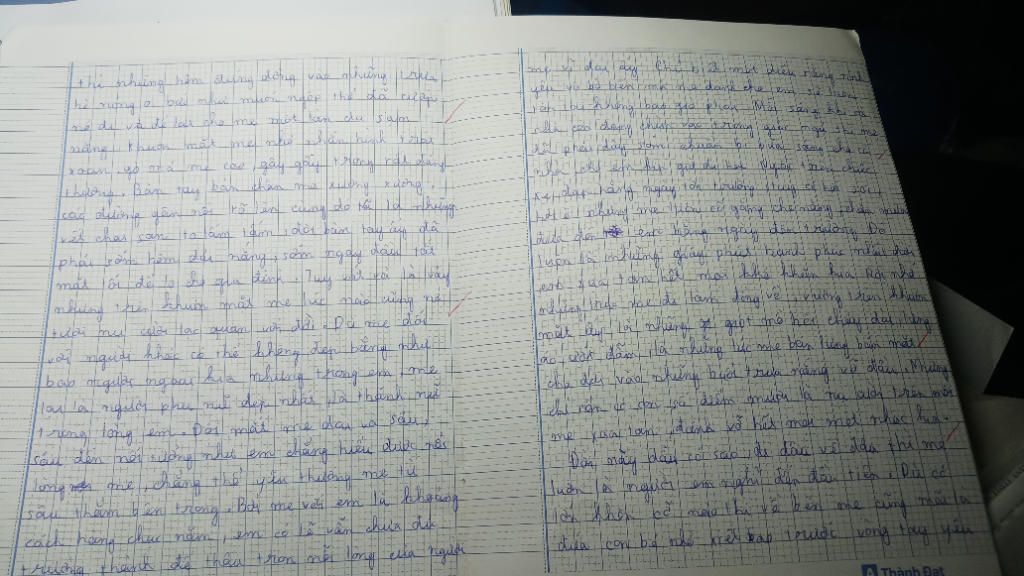 thì những hôm đứng đồng vào những trưa
hè nóng bức như muốn ngộp thở đã cướp
nó đi và để lại cho mẹ một làn da sạm
nắng. Khuôn mặt mẹ nhỏ nhắn hình trái
xoan, gò má mẹ cao gầy gầy trông rất đáng
thương. Bàn tay bàn chân mẹ xương xương,
các đường gân nổi rõ lên cùng đó là những
vết chai sạn to lấm tấm, đôi bàn tay ấy đã
phải sớm hôm dãi nắng, sớm ngày đầu tắt
mặt tối để lo cho gia đình. Tuy vất vả là vậy
nhưng trên khuôn mặt mẹ lúc nào cũng nở
tươi nụ cười lạc quan với đời. Dù mẹ đối
với người khác có thể không đẹp bằng như
bao người ngoài kia nhưng trong em, mẹ
lại là người phụ nữ đẹp nhất, là thành nữ
trong lòng em. Đôi mắt mẹ đen và sâu,
sâu đến nỗi tưởng như em chẳng hiểu được nỗi
lòng mẹ, chẳng thể yêu thương mẹ từ
sâu thẳm bên trong. Bởi mẹ với em là khoảng
cách hàng chục năm, em có lẽ vẫn chưa đủ
trưởng thành để thấu trọn nỗi lòng của người
mẹ vĩ đại ấy. Chỉ biết một điều rằng tình
yêu vô bờ bến mà mẹ dành cho em sẽ luôn
tồn tại không bao giờ phai. Mỗi sáng khi cả
nhà còn đang chìm vào trong giấc ngủ thì mẹ
đã phải dậy sớm chuẩn bị bữa sáng cho cả
nhà, chị em
hàng ngày tới trường tuy có hơi
nhưng mẹ luôn cố gắng
đưa đón em hằng ngày đến trường. Đó
luôn là những giây phút hạnh phúc
em xua tan hết mọi khó khăn kia. Rồi như
những lúc mẹ đi làm đồng về, vương trên khuôn
mặt ấy là những giọt mồ hôi chảy dài, lưng
áo ướt đẫm, là những lúc mẹ bán lưng bán mặt
cho đời vào những buổi trưa nắng vỡ đầu. Nhưng
chỉ cần có con sà điểm mười là nụ cười trên môi
mẹ xua tan, đánh vỡ hết mọi mệt nhọc kia.
Đời này dẫu có sao, đi đâu về đâu thì mẹ
luôn là người em nghĩ đến đầu tiên. Dù có
lớn khôn cỡ nào thì về bên mẹ cũng mãi là
đứa con bé nhỏ trước vòng tay yêu
Thành Đạt